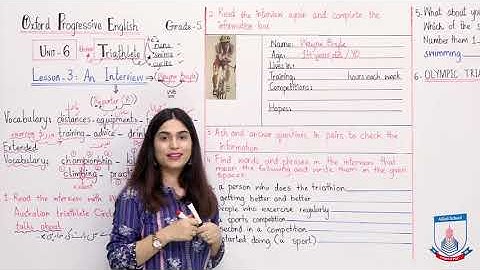 Oxford Progressive English Grade-5
Unit-6 Triathlete
runs
swims
cycles
Lesson-3: An Interview Wayne Boyle
Reporter (R)
WB
Vocabulary: distances - equipments -
training - advice - drink
Extended
Vocabulary: championship -
climbing - pract
1. Read the interview with W
Australian triathlete. Circle
talks about
2. Read the interview again and complete the
information box
Name: Wayne Boyle
Age:
Lives in:
Training: hours each week
Competitions:
Hopes:
3. Ask and answer questions in pairs to check the
information.
4. Find words and phrases in the interview that
mean the following and write them in the given
spaces.
a person who does the triathlon
getting better and better
people who excercise regularly
a sports competition
second in a competition
started doing (a sport)
5. What about yo
Which of the s
Number them 1
swimming
6. OLYMPIC TRIA
Allied School